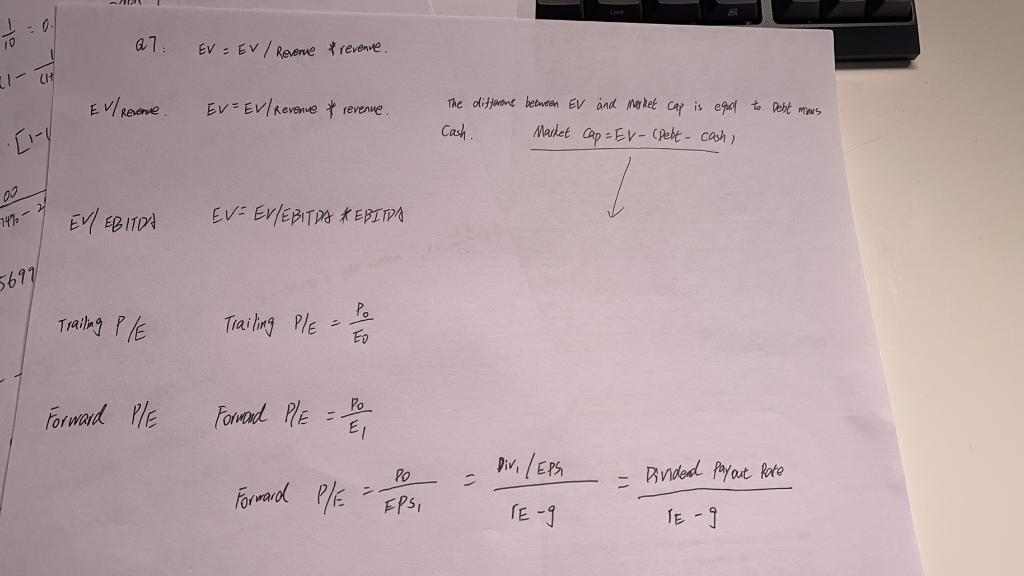 1/10 = 0.
Q7: EV = EV/Revenue * revenue.
EV/Revenue. EV = EV/Revenue * revenue. The different between EV and Market Cap is equal to Debt minus
Cash. Market Cap = EV - (Debt - cash)
EV/EBITDA EV = EV/EBITDA * EBITDA
5699
Trailing P/E Trailing P/E = P0/E0
Forward P/E Forward P/E = P0/E1
Forward P/E = P0/EPS1 = Div1/EPS1/rE - g = Dividend Payout Rate/rE - g